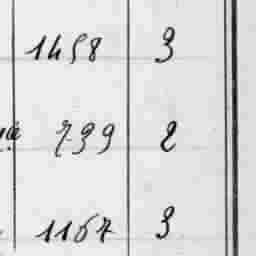 1458 3
799 2
1167 3